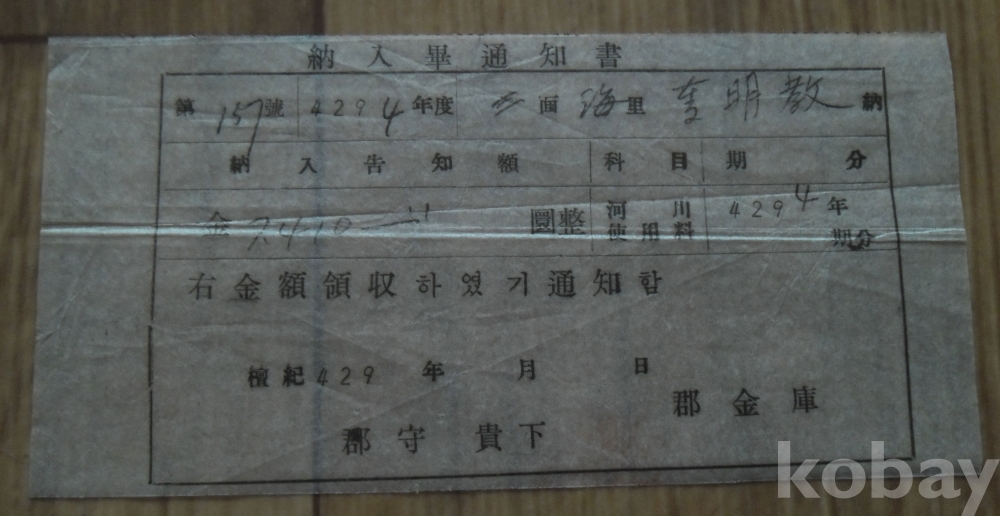 納入畢通知書
第 157 號 4294 年度 三 面 海 里 李明敎 納
納入告知額 科目 期分
金 7410 圜整 河川使用料 4294年 期分
右金額領収하였기通知함
檀紀 429 年 月 日
郡金庫
郡守 貴下
kobay